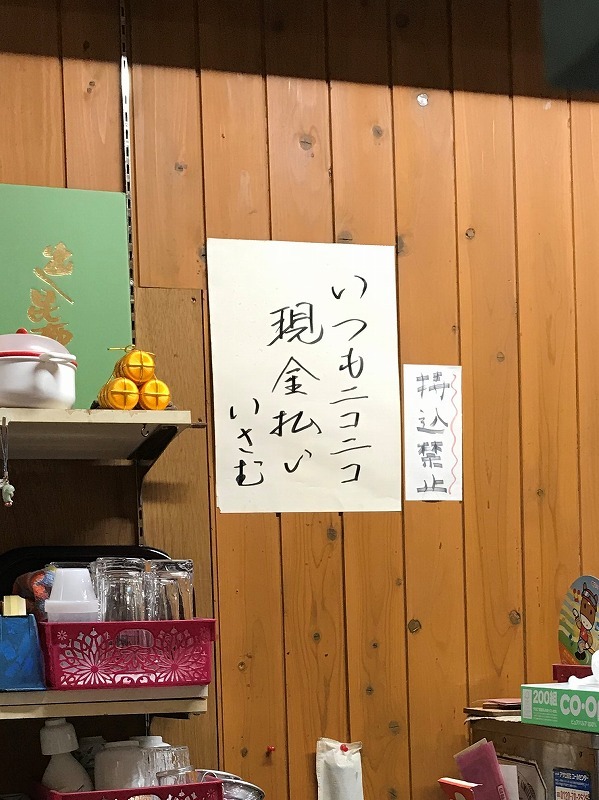 いつもニコニコ
現金払い
いさむ
持込禁止
200組
CO-OP